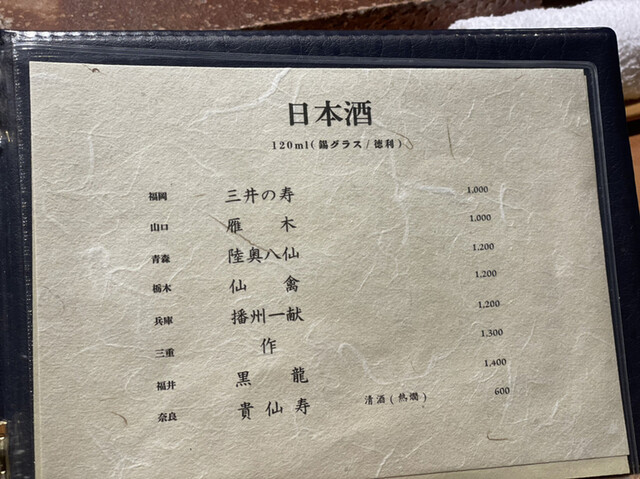 日本酒
120ml(錫グラス/徳利)
福岡 三井の寿 1,000
山口 雁木 1,000
青森 陸奥八仙 1,200
栃木 仙禽 1,200
兵庫 播州一献 1,200
三重 作 1,300
福井 黒龍 1,400
奈良 貴仙寿 清酒(熱燗) 600